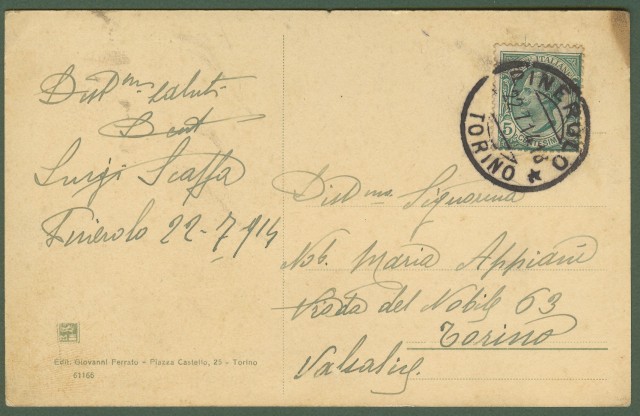 Dist.mi saluti
Luigi Scaffa
Pinerolo 22-7-914
Edit. Giovanni Ferrato - Piazza Castello, 25 - Torino
61166
PINEROLO
TORINO
5
CENTESIMI
Dist.ma Signorina
Nob. Maria Appiani
Strada del Nobile 63
Torino
Valsalice.